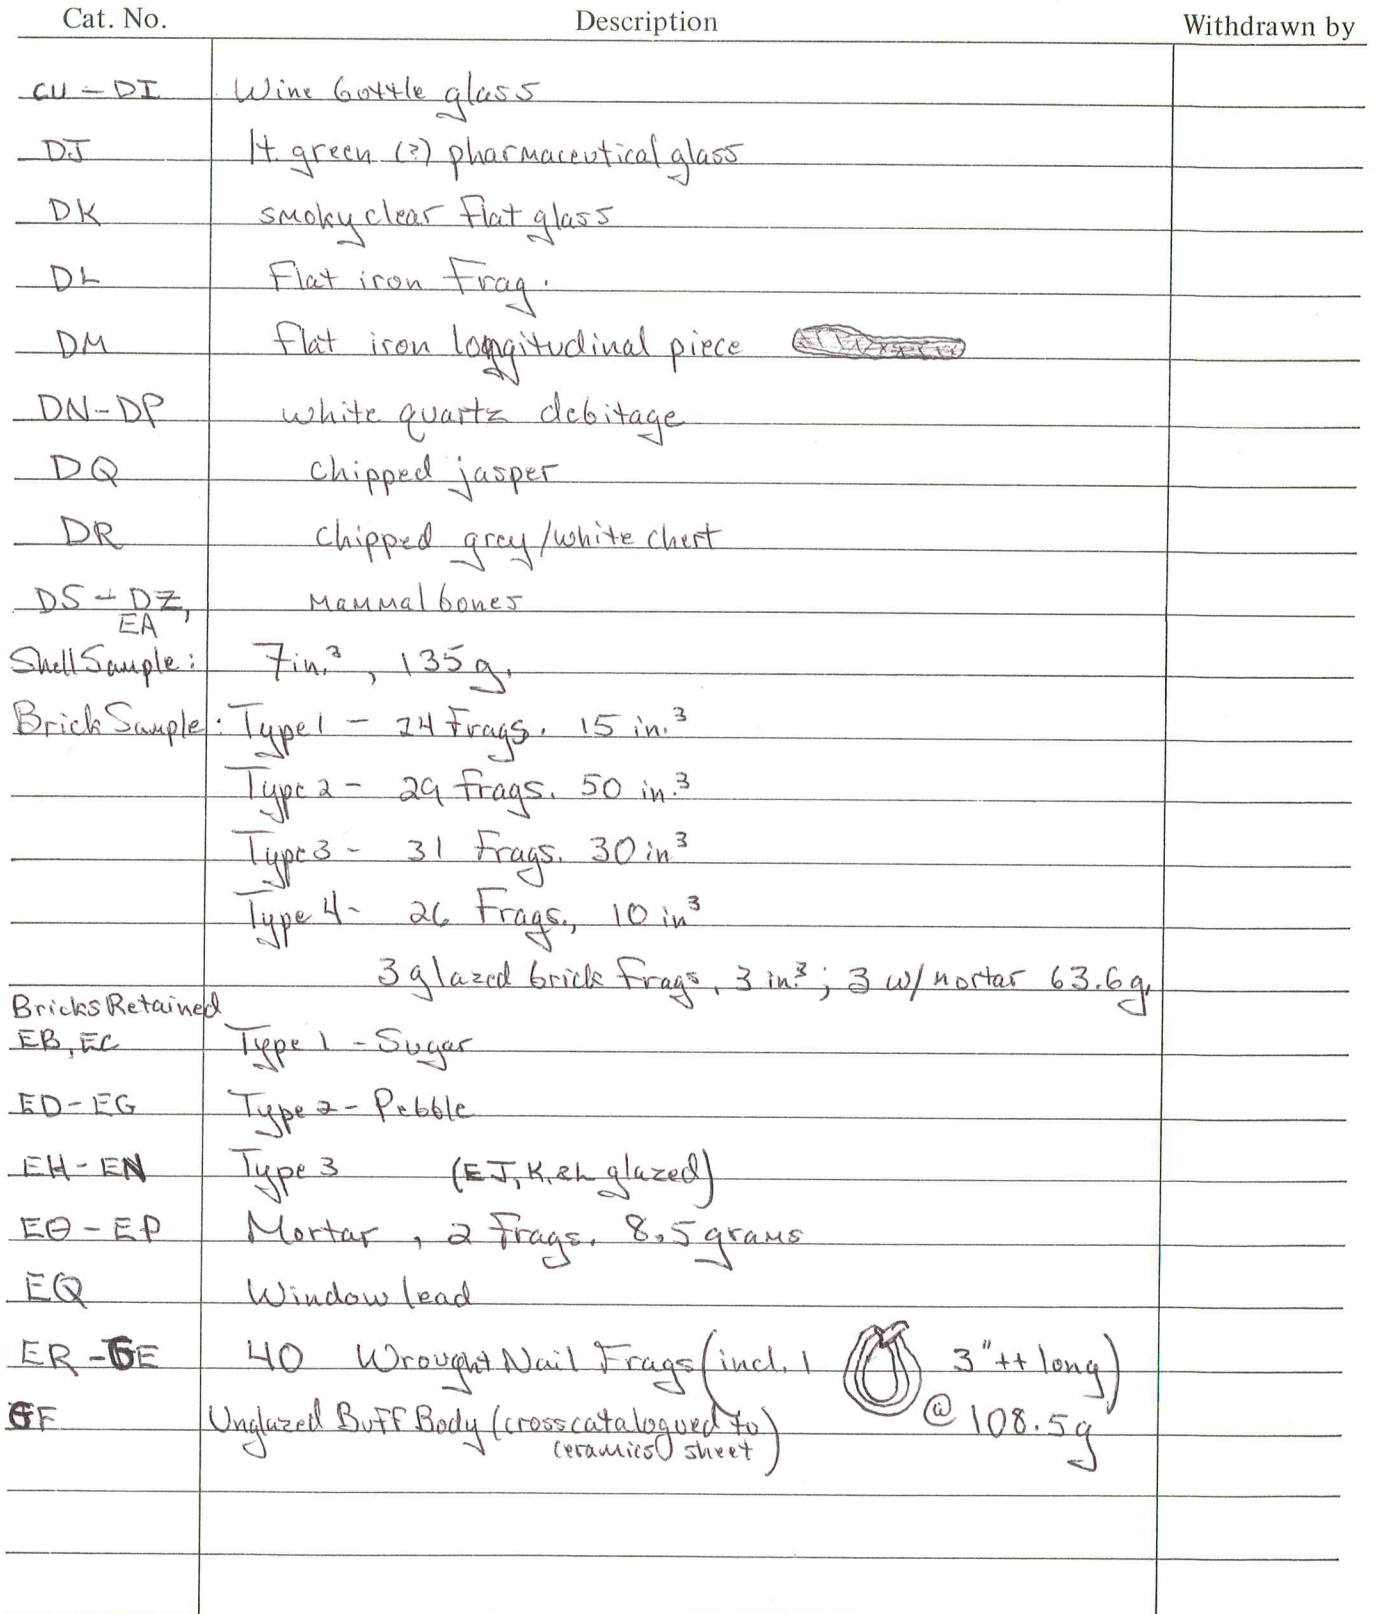 Cat. No. Description Withdrawn by
CU - DI Wine bottle glass
DJ lt. green (?) pharmaceutical glass
DK smoky clear flat glass
DL Flat iron Frag.
DM flat iron longitudinal piece
DN-DP white quartz debitage
DQ chipped jasper
DR chipped grey/white chert
DS - DZ, Mammal bones
EA
Shell Sample: 7 in.³, 135 g.
Brick Sample: Type 1 - 24 Frags. 15 in.³
Type 2 - 29 frags. 50 in.³
Type 3 - 31 Frags. 30 in³
Type 4 - 26 Frags., 10 in³
3 glazed brick frags, 3 in.³; 3 w/ mortar 63.6 g.
Bricks Retained
EB, EC Type 1 - Sugar
ED-EG Type 2 - Pebble
EH-EN Type 3 (EJ, K, & L glazed)
EO - EP Mortar, 2 Frags. 8.5 grams
EQ Window lead
ER - GE 40 Wrought Nail Frags (incl. 1 3"++ long)
GF Unglazed Buff Body (crosscatalogued to @ 108.5g
ceramics sheet)